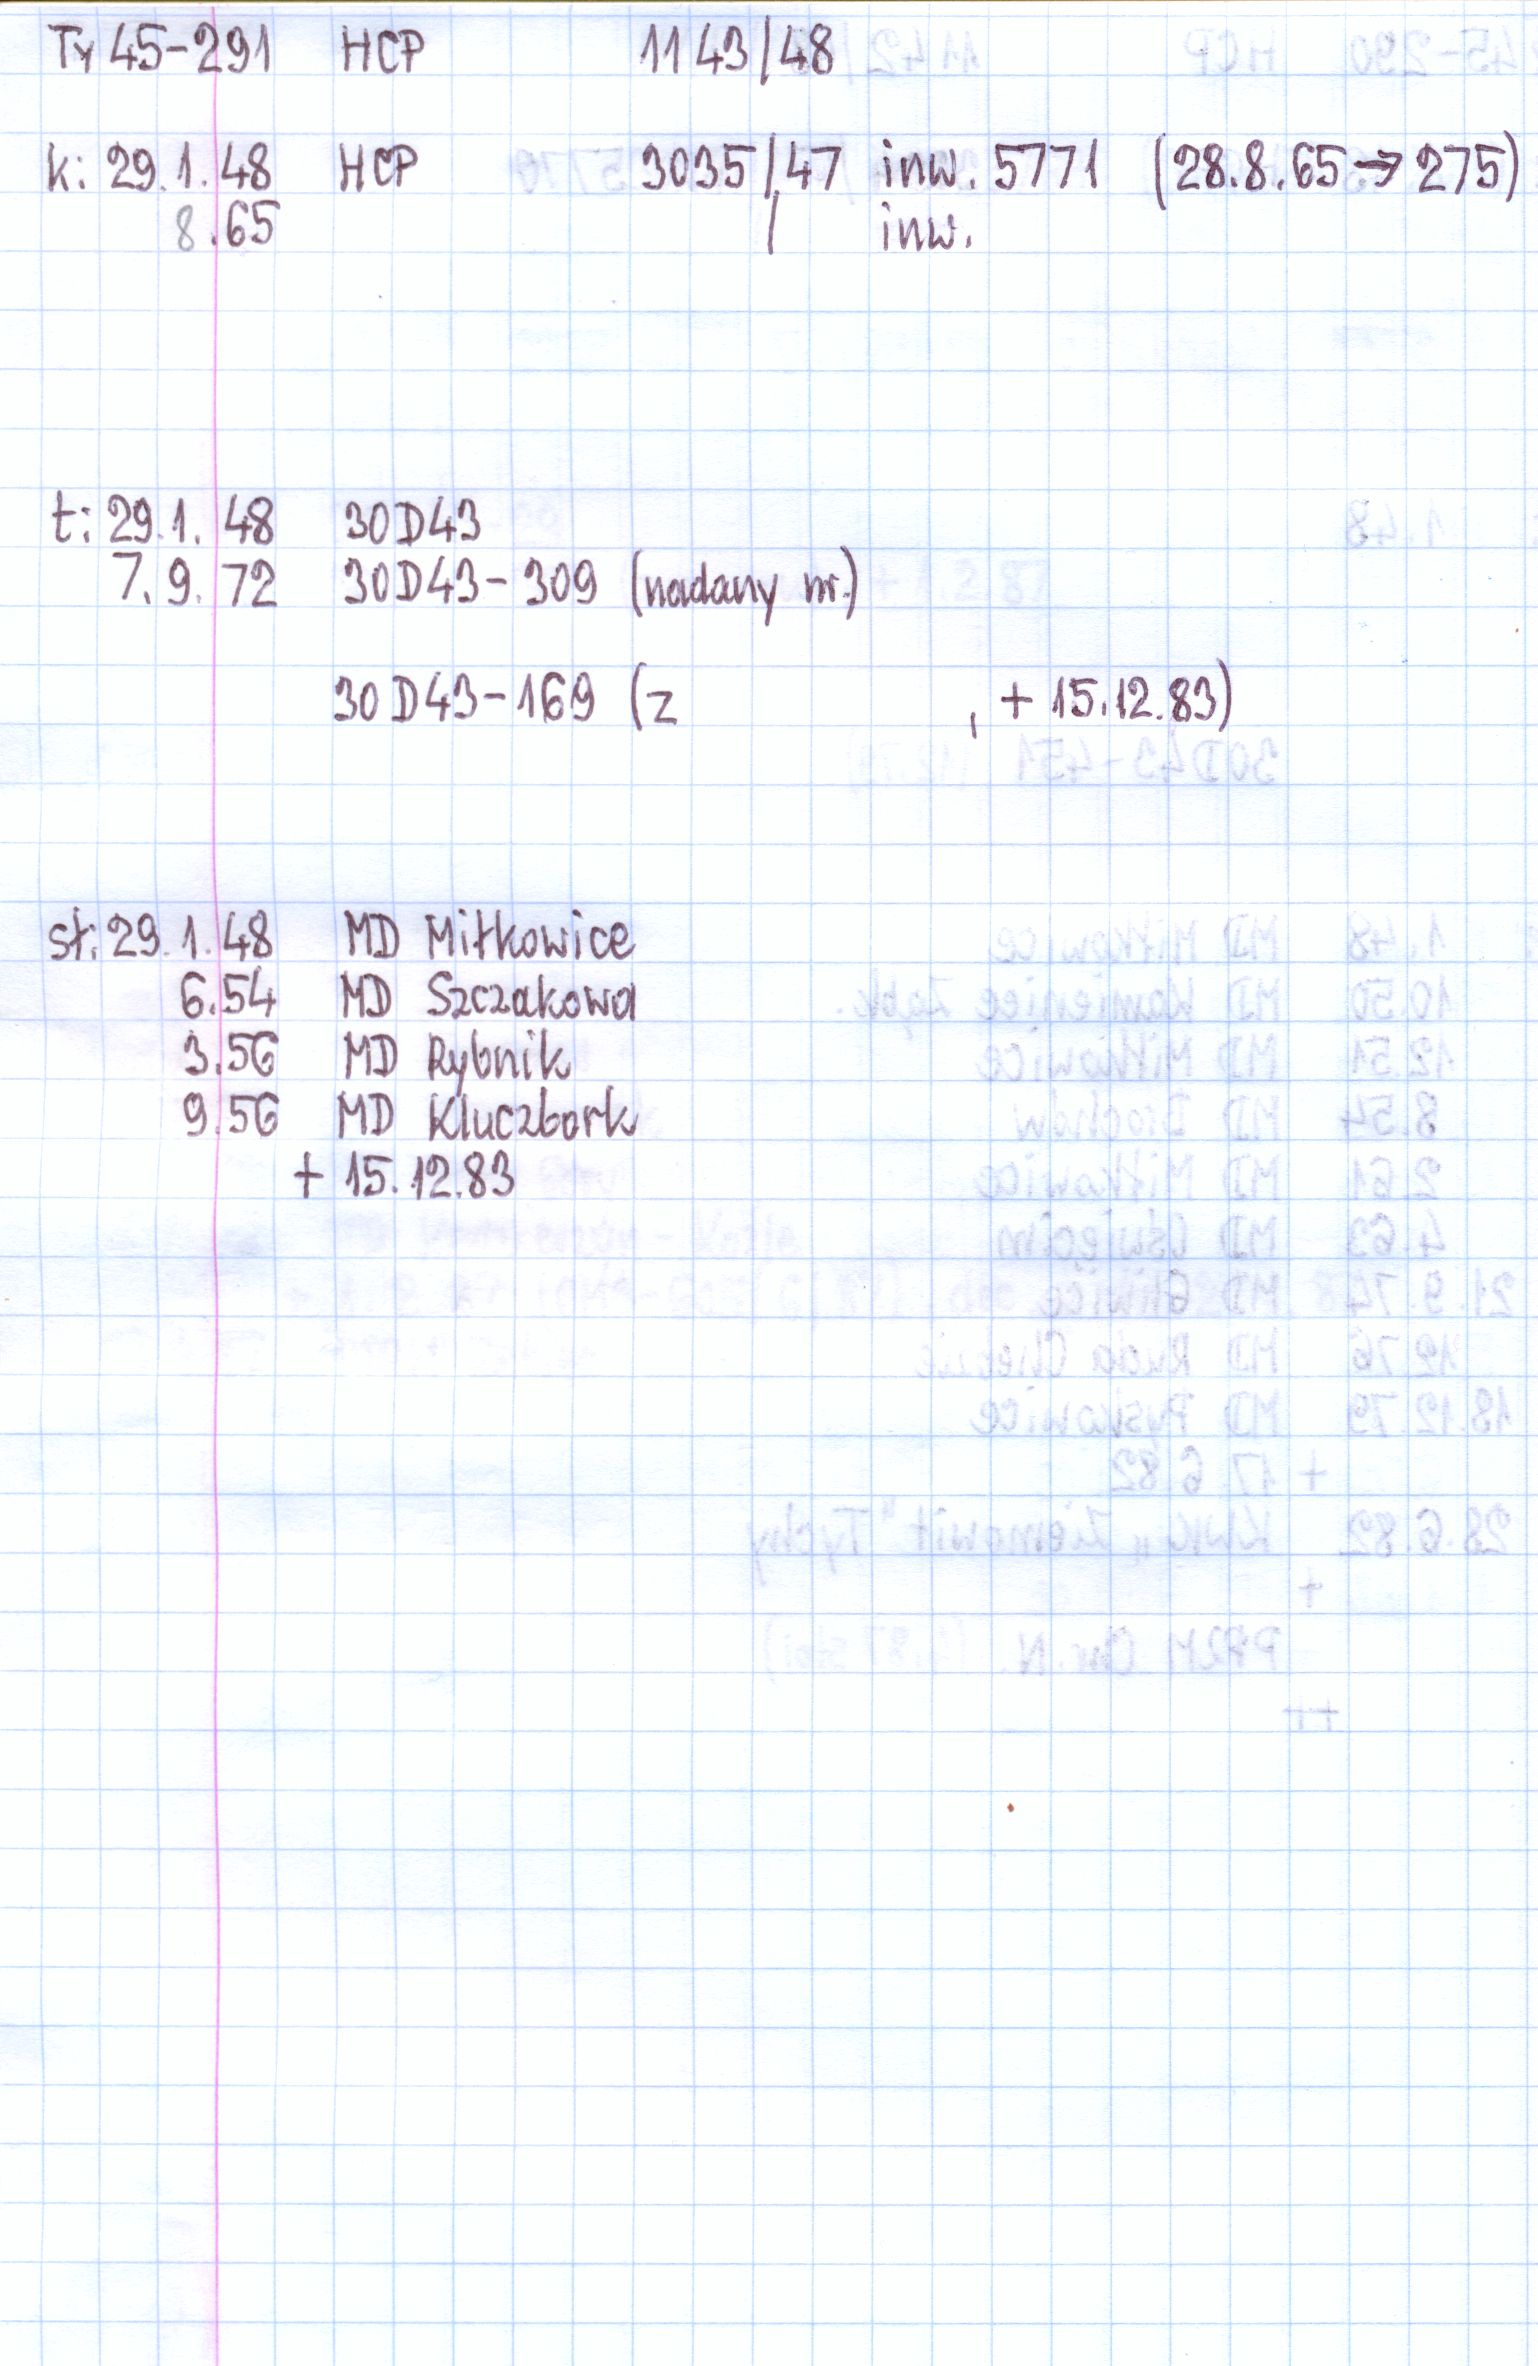 Ty 45-291 HCP 1143/48
k: 29.1.48 HCP 3035/47 inw. 5771 (28.8.65 → 275)
8.65 / inw.
t: 29.1.48 30D43
7.9.72 30D43-309 (nadany nr.)
30D43-169 (z , + 15.12.83)
st: 29.1.48 MD Miłkowice
6.54 MD Szczakowa
3.56 MD Rybnik
9.56 MD Kluczbork
+ 15.12.83